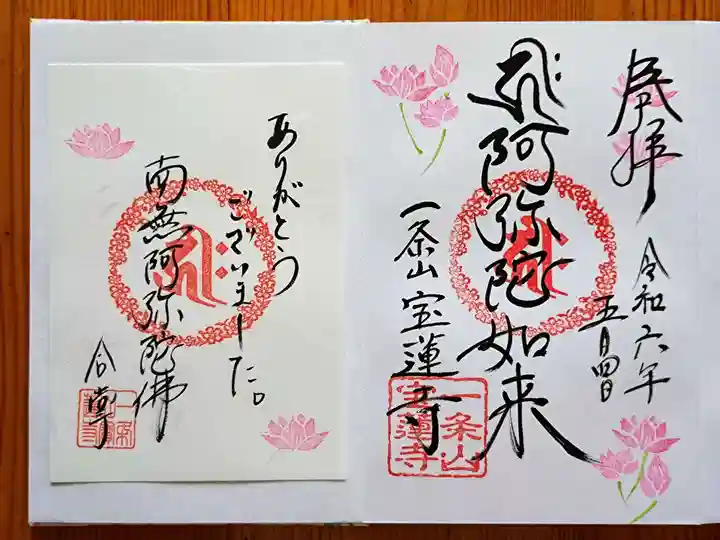 奉拝
令和六年
五月四日
阿弥陀如来
一条山 宝蓮寺
一条山
宝蓮寺
ありがとう
ございました。
南無阿弥陀佛
合掌